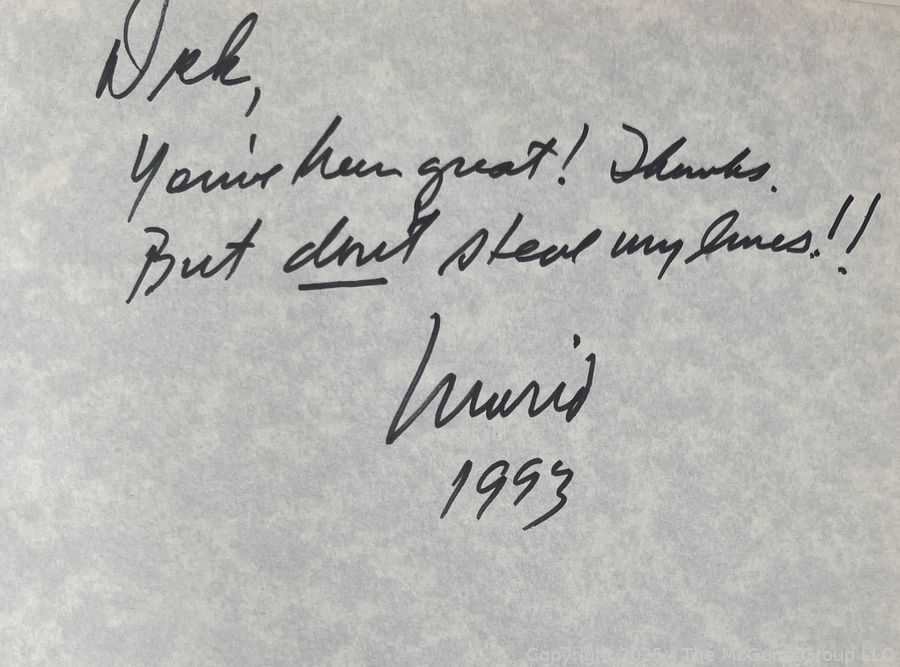 Dick,
You've been great! Thanks.
But don't steal my lines!!
Mario
1993
Copyright 2025 - The McGuire Group LLC